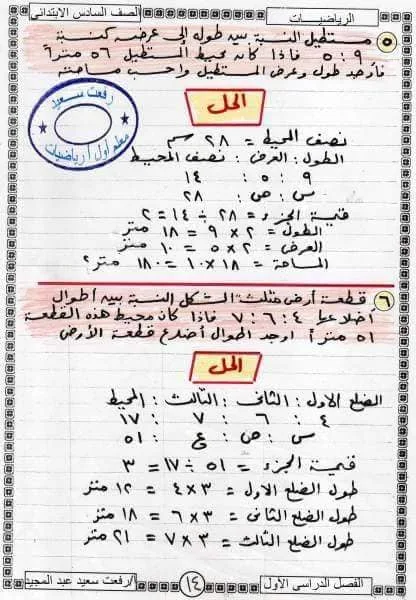 الرياضيات
الصف السادس الابتدائى
٥ مستطيل النسبة بين طوله إلى عرضه كنسبة
٩ : ٥ فإذا كان محيط المستطيل ٥٦ متراً
فأوجد طول وعرض المستطيل واحسب مساحته
رفعت سعيد
معلم أول رياضيات
الحل
نصف المحيط = ٢٨ سم
الطول : العرض : نصف المحيط
٩ : ٥ : ١٤
س : ص : ٢٨
قيمة الجزء = ٢٨ ÷ ١٤ = ٢
الطول = ٢ × ٩ = ١٨ متر
العرض = ٢ × ٥ = ١٠ متر
المساحة = ١٨ × ١٠ = ١٨٠ متر٢
٦ قطعة أرض مثلثة الشكل النسبة بين أطوال
أضلاعها ٤ : ٦ : ٧ فإذا كان محيط هذه القطعة
٥١ متراً اوجد اطوال أضلاع قطعة الأرض
الحل
الضلع الاول : الثانى : الثالث : المحيط
٤ : ٦ : ٧ : ١٧
س : ص : ع : ٥١
قيمة الجزء = ٥١ ÷ ١٧ = ٣
طول الضلع الاول = ٣ × ٤ = ١٢ متر
طول الضلع الثانى = ٣ × ٦ = ١٨ متر
طول الضلع الثالث = ٣ × ٧ = ٢١ متر
الفصل الدراسى الأول
١٤
أ/رفعت سعيد عبد المجيد